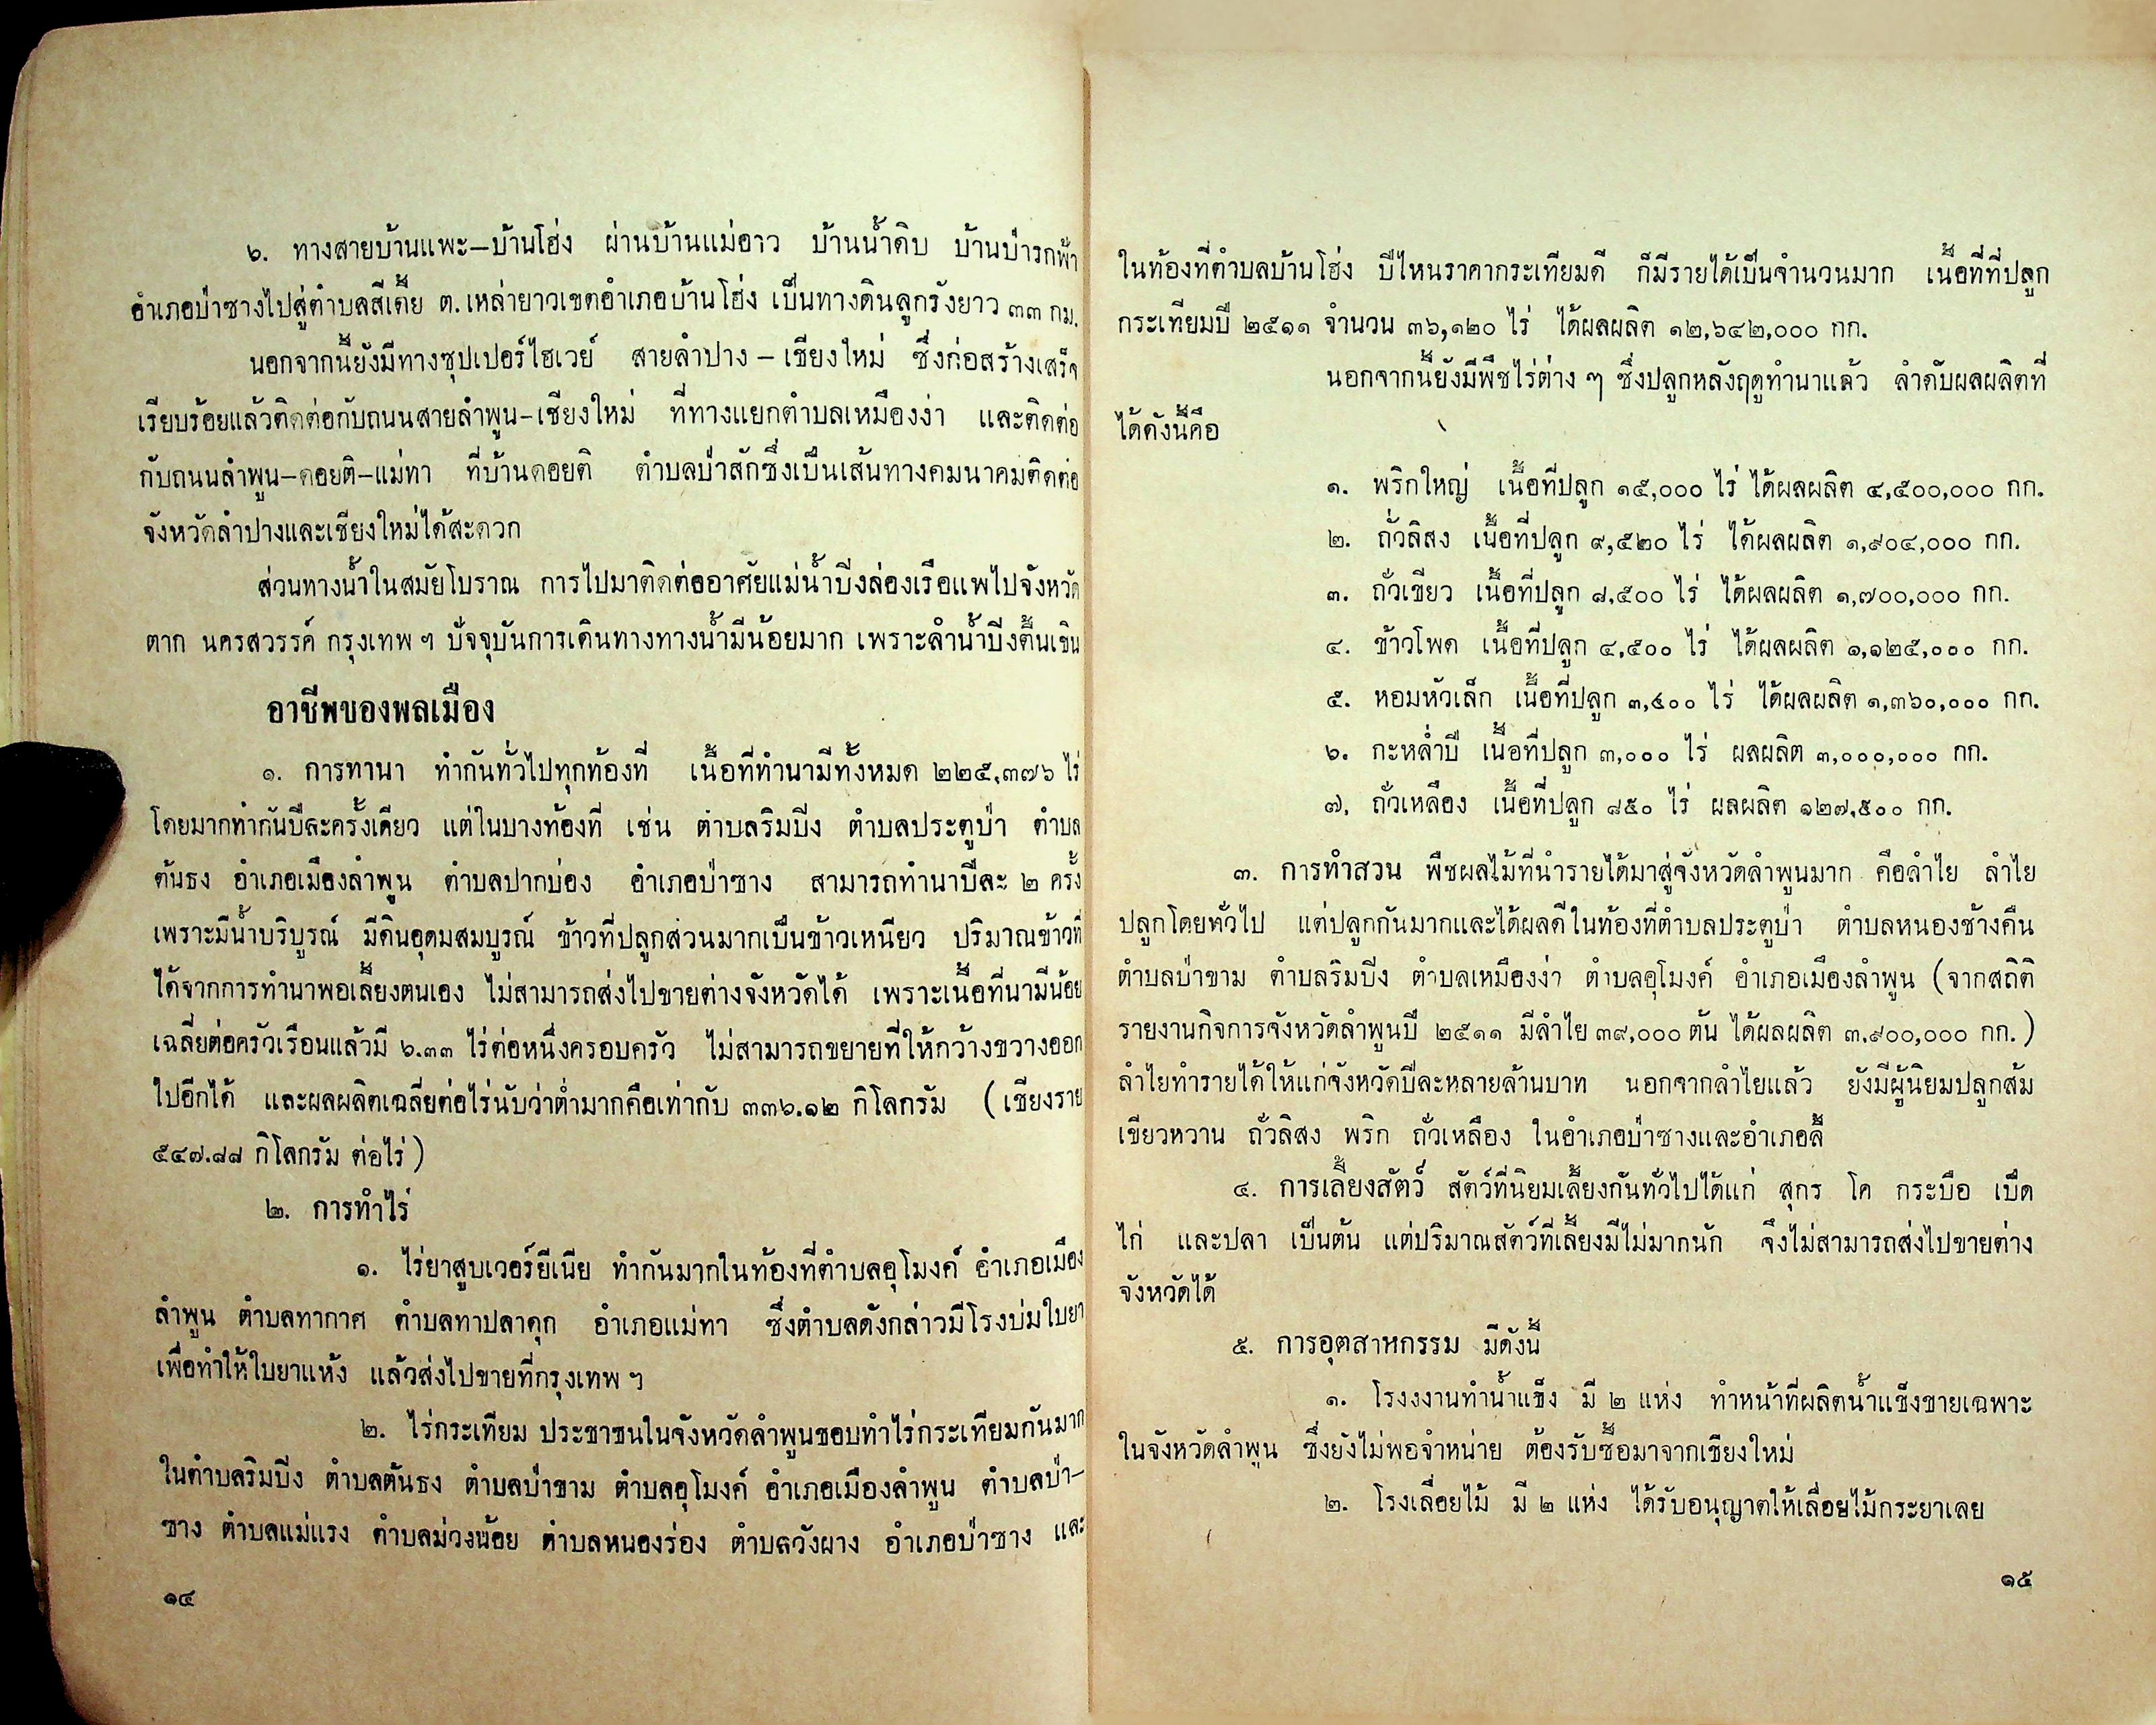 ๖. ทางสายบ้านแพะ-บ้านโฮ่ง ผ่านบ้านแม่อาว บ้านน้ำดิบ บ้านป่ารกฟ้า
อำเภอป่าซางไปสู่ตำบลสีเตี้ย ต. เหล่ายาวเขตอำเภอบ้านโฮ่ง เป็นทางดินลูกรังยาว ๓๓ กม.
นอกจากนี้ยังมีทางซุปเปอร์ไฮเวย์ สายลำปาง - เชียงใหม่ ซึ่งก่อสร้างเสร็จ
เรียบร้อยแล้วติดต่อกับถนนสายลำพูน-เชียงใหม่ ที่ทางแยกตำบลเหมืองง่า และติดต่อ
กับถนนลำพูน-ดอยติ-แม่ทา ที่บ้านดอยติ ตำบลป่าสักซึ่งเป็นเส้นทางคมนาคมติดต่อ
จังหวัดลำปางและเชียงใหม่ได้สะดวก
ส่วนทางน้ำในสมัยโบราณ การไปมาติดต่ออาศัยแม่น้ำปิงล่องเรือแพไปจังหวัด
ตาก นครสวรรค์ กรุงเทพ ฯ ปัจจุบันการเดินทางทางน้ำมีน้อยมาก เพราะลำน้ำปิงตื้นเขิน
อาชีพของพลเมือง
๑. การทานา ทำกันทั่วไปทุกท้องที่ เนื้อที่ทำนามีทั้งหมด ๒๒๕,๓๗๖ ไร่
โดยมากทำกันปีละครั้งเดียว แต่ในบางท้องที่ เช่น ตำบลริมปิง ตำบลประตูป่า ตำบล
ต้นธง อำเภอเมืองลำพูน ตำบลปากบ่อง อำเภอป่าซาง สามารถทำนาปีละ ๒ ครั้ง
เพราะมีน้ำบริบูรณ์ มีดินอุดมสมบูรณ์ ข้าวที่ปลูกส่วนมากเป็นข้าวเหนียว ปริมาณข้าวที่
ได้จากการทำนาพอเลี้ยงตนเอง ไม่สามารถส่งไปขายต่างจังหวัดได้ เพราะเนื้อที่นามีน้อย
เฉลี่ยต่อครัวเรือนแล้วมี ๖.๓๓ ไร่ต่อหนึ่งครอบครัว ไม่สามารถขยายที่ให้กว้างขวางออก
ไปอีกได้ และผลผลิตเฉลี่ยต่อไร่นับว่าต่ำมากคือเท่ากับ ๓๓๖.๑๒ กิโลกรัม (เชียงราย
๕๔๗.๘๘ กิโลกรัม ต่อไร่)
๒. การทำไร่
๑. ไร่ยาสูบเวอร์ยีเนีย ทำกันมากในท้องที่ตำบลอุโมงค์ อำเภอเมือง
ลำพูน ตำบลทากาศ ตำบลทาปลาดุก อำเภอแม่ทา ซึ่งตำบลดังกล่าวมีโรงบ่มใบยา
เพื่อทำให้ใบยาแห้ง แล้วส่งไปขายที่กรุงเทพ ฯ
๒. ไร่กระเทียม ประชาชนในจังหวัดลำพูนชอบทำไร่กระเทียมกันมาก
ในตำบลริมปิง ตำบลต้นธง ตำบลป่าขาม ตำบลอุโมงค์ อำเภอเมืองลำพูน ตำบลป่า-
ซาง ตำบลแม่แรง ตำบลม่วงน้อย ตำบลหนองร่อง ตำบลวังผาง อำเภอป่าซาง และ
๑๔
ในท้องที่ตำบลบ้านโฮ่ง ปีไหนราคากระเทียมดี ก็มีรายได้เป็นจำนวนมาก เนื้อที่ที่ปลูก
กระเทียมปี ๒๕๑๑ จำนวน ๓๖,๑๒๐ ไร่ ได้ผลผลิต ๑๒,๖๔๒,๐๐๐ กก.
นอกจากนี้ยังมีพืชไร่ต่าง ๆ ซึ่งปลูกหลังฤดูทำนาแล้ว ลำดับผลผลิตที่
ได้ดังนี้คือ
๑. พริกใหญ่ เนื้อที่ปลูก ๑๕,๐๐๐ ไร่ ได้ผลผลิต ๔,๕๐๐,๐๐๐ กก.
๒. ถั่วลิสง เนื้อที่ปลูก ๙,๕๒๐ ไร่ ได้ผลผลิต ๑,๙๐๔,๐๐๐ กก.
๓. ถั่วเขียว เนื้อที่ปลูก ๘,๕๐๐ ไร่ ได้ผลผลิต ๑,๗๐๐,๐๐๐ กก.
๔. ข้าวโพด เนื้อที่ปลูก ๔,๕๐๐ ไร่ ได้ผลผลิต ๑,๑๒๕,๐๐๐ กก.
๕. หอมหัวเล็ก เนื้อที่ปลูก ๓,๔๐๐ ไร่ ได้ผลผลิต ๑,๓๖๐,๐๐๐ กก.
๖. กะหล่ำปี เนื้อที่ปลูก ๓,๐๐๐ ไร่ ผลผลิต ๓,๐๐๐,๐๐๐ กก.
๗. ถั่วเหลือง เนื้อที่ปลูก ๘๕๐ ไร่ ผลผลิต ๑๒๗,๕๐๐ กก.
๓. การทำสวน พืชผลไม้ที่นำรายได้มาสู่จังหวัดลำพูนมาก คือลำไย ลำไย
ปลูกโดยทั่วไป แต่ปลูกกันมากและได้ผลดีในท้องที่ตำบลประตูป่า ตำบลหนองช้างคืน
ตำบลป่าขาม ตำบลริมปิง ตำบลเหมืองง่า ตำบลอุโมงค์ อำเภอเมืองลำพูน (จากสถิติ
รายงานกิจการจังหวัดลำพูนปี ๒๕๑๑ มีลำไย ๓๙,๐๐๐ ต้น ได้ผลผลิต ๓.๙๐๐,๐๐๐ กก.)
ลำไยทำรายได้ให้แก่จังหวัดปีละหลายล้านบาท นอกจากลำไยแล้ว ยังมีผู้นิยมปลูกส้ม
เขียวหวาน ถั่วลิสง พริก ถั่วเหลือง ในอำเภอป่าซางและอำเภอลี้
๔. การเลี้ยงสัตว์ สัตว์ที่นิยมเลี้ยงกันทั่วไปได้แก่ สุกร โค กระบือ เป็ด
ไก่ และปลา เป็นต้น แต่ปริมาณสัตว์ที่เลี้ยงมีไม่มากนัก จึงไม่สามารถส่งไปขายต่าง
จังหวัดได้
๕. การอุตสาหกรรม มีดังนี้
๑. โรงงงานทำน้ำแข็ง มี ๒ แห่ง ทำหน้าที่ผลิตน้ำแข็งขายเฉพาะ
ในจังหวัดลำพูน ซึ่งยังไม่พอจำหน่าย ต้องรับซื้อมาจากเชียงใหม่
๒. โรงเลื่อยไม้ มี ๒ แห่ง ได้รับอนุญาตให้เลื่อยไม้กระยาเลย
๑๕